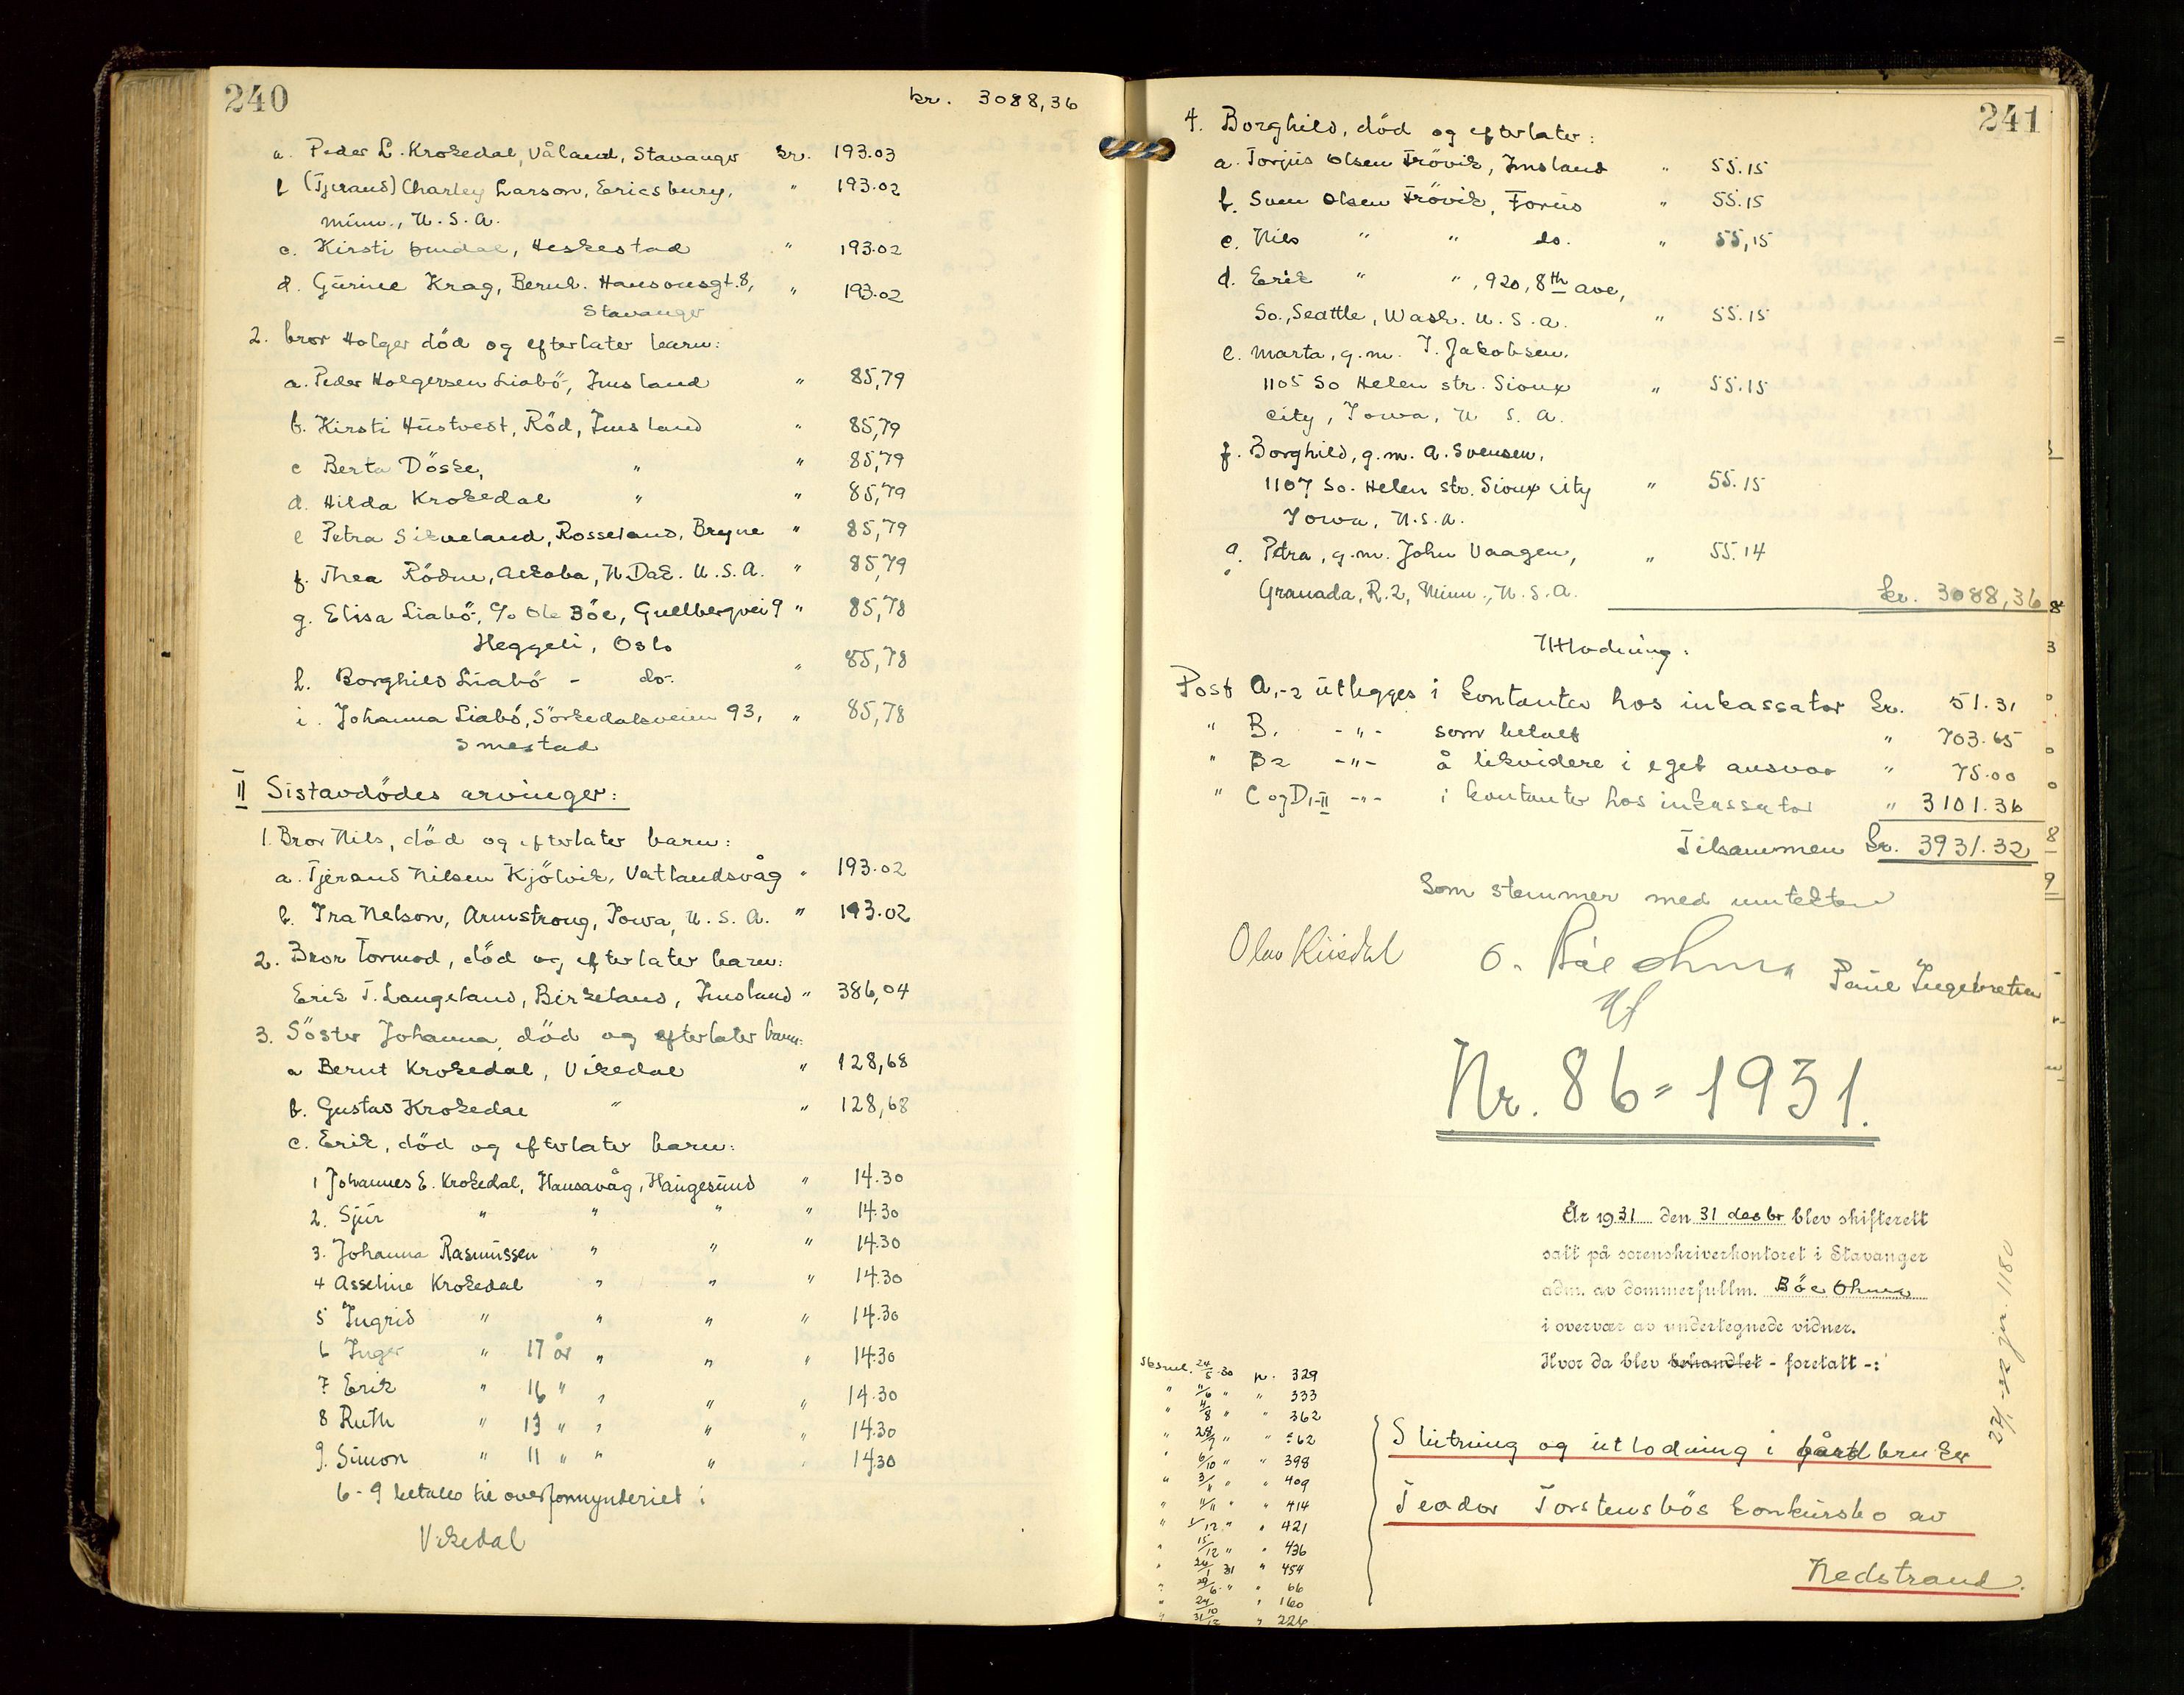 240
kr. 3088,36
a. Peder L. Krokedal, Våland, Stavanger kr. 193.03
b (Tjerand) Charley Larson, Ericsbury, " 193.02
Minn., U.S.A.
c. Kirsti Omdal, Heskestad " 193.02
d. Gurine Krag, Bernh. Hansonsgt. 8, " 193.02
Stavanger
2. bror Holger död og efterlater barn:
a. Peder Holgersen Liabö, Imsland " 85,79
b. Kirsti Hustvest, Röd, Imsland " 85,79
c Berta Döske, " " 85,79
d. Hilda Krokedal " " 85,79
e Petra Sikveland, Rosseland, Bryne " 85,79
f. Thea Rödne, Alkabo, N.Dak. U.S.A. " 85,79
g. Elisa Liabö, c/o Ole Böe, Gullbergvei 9 " 85,78
Heggeli, Oslo
h. Borghild Liabö - do. " 85,78
i. Johanna Liabö, Sörkedalsveien 93, " 85,78
Smestad
II Sistavdödes arvinger:
1. Bror Nils, död og efterlater barn:
a. Tjerand Nilsen Kjölvik, Vatlandsvåg " 193.02
b. Ira Nelson, Armstrong, Iowa, U.S.A. " 193.02
2. Bror Tormod, död og efterlater barn:
Erik T. Langeland, Birkeland, Imsland " 386,04
3. Söster Johanna, död og efterlater barn:
a Bernt Krokedal, Vikedal " 128,68
b. Gustav Krokedal " " 128,68
c. Erik, död og efterlater barn:
1 Johannes E. Krokedal, Hansavåg, Haugesund " 14.30
2. Sjur " " " " 14.30
3. Johanna Rasmussen " " " 14.30
4 Asseline Krokedal " " " 14.30
5 Ingrid " " " " 14.30
6 Inger " 17 år " " " 14.30
7 Erik " 16 " " " " 14.30
8 Ruth " 13 " " " " 14.30
9. Simon " 11 " " " " 14.30
6-9 betales til overformynderiet i
Vikedal
241
4. Borghild, död og efterlater:
a. Torjus Olsen Trövik, Imsland " 55.15
b. Sven Olsen Trövik, Forus " 55.15
c. Nils " " do. " 55,15
d. Erik " ", 920, 8th ave,
So., Seattle, Wash. U.S.A. " 55.15
e. Marta, g.m. T. Jakobsen,
1105 So Helen str. Sioux " 55.15
City, Iowa, U.S.A.
f. Borghild, g.m. A. Svensen,
1107 So. Helen str. Sioux City " 55.15
Iowa, U.S.A.
g. Petra, g.m. John Vaagen, " 55.14
Granada, R.2, Minn., U.S.A. kr. 3088,36
Utlodning:
Post A,-2 utlegges i kontanter hos inkassator kr. 51.31
" B, -"- som betalt " 703.65
" B2 -"- å likvidere i eget ansvar " 75.00
" C og D,-II -"- i kontanter hos inkassator " 3101.36
Tilsammen kr. 3931.32
Som stemmer med inntekten
O. Böe Ohma Paul Ingebretsen
Nr. 86 = 1931.
År 1931 den 31 desbr blev skifterett
satt på sorenskriverkontoret i Stavanger
adm. av dommerfullm. Böe Ohma
i overvær av undertegnede vidner.
Hvor da blev behandlet - foretatt -:
22/1-32 jn. 1180
24/5.30 p. 329
" 11/6 " " 333
" 4/8 " " 362
" " " 362
" 6/10 " " 398
" " " 409
" 11/11 " " 414
" 1/12 " " 421
" 15/12 " " 436
" 24/1 31 " 454
" 29/6 " " 66
" 24/10 " 160
" 31/12 " 226
Slutning og utlodning i gårdbruker
Teodor Torstensbös konkursbo av
Nedstrand.